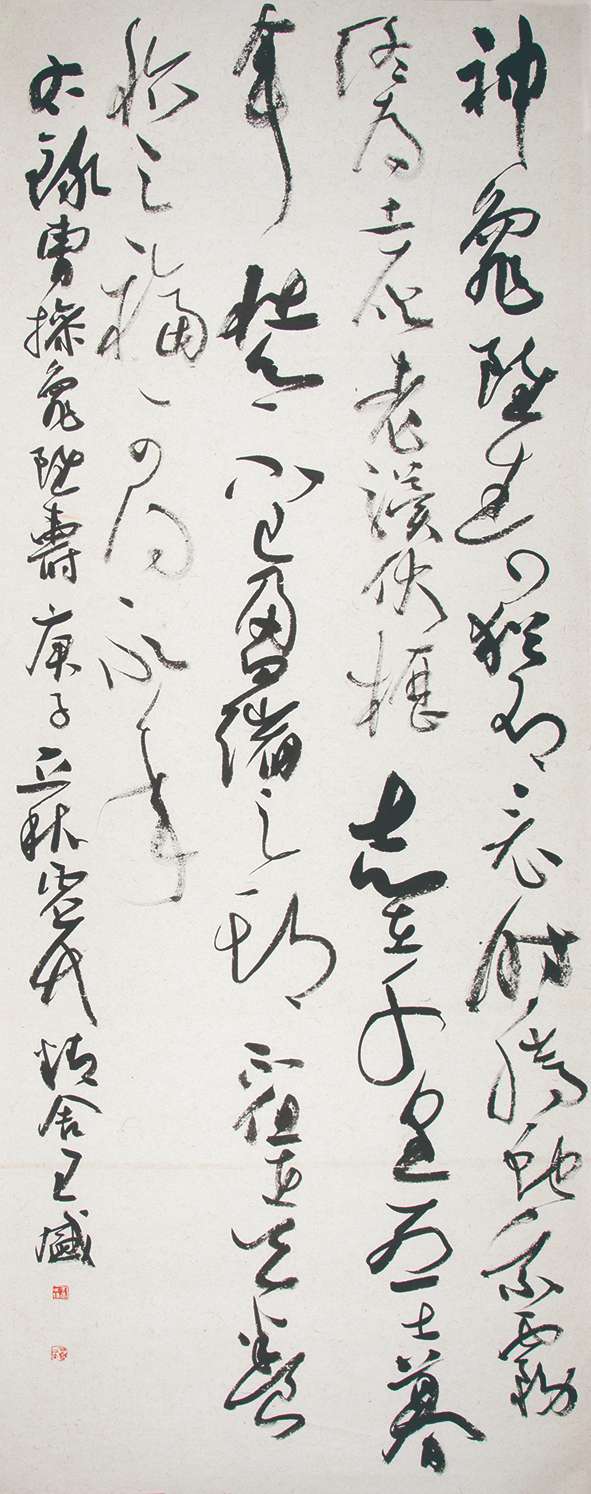 神龜雖壽猶有竟時騰蛇乘霧
終為土灰老驥伏櫪志在千里烈士暮
年壯心不已盈縮之期不但在天養
怡之福可得永年
右錄曹操龜雖壽庚子立秋精舍王